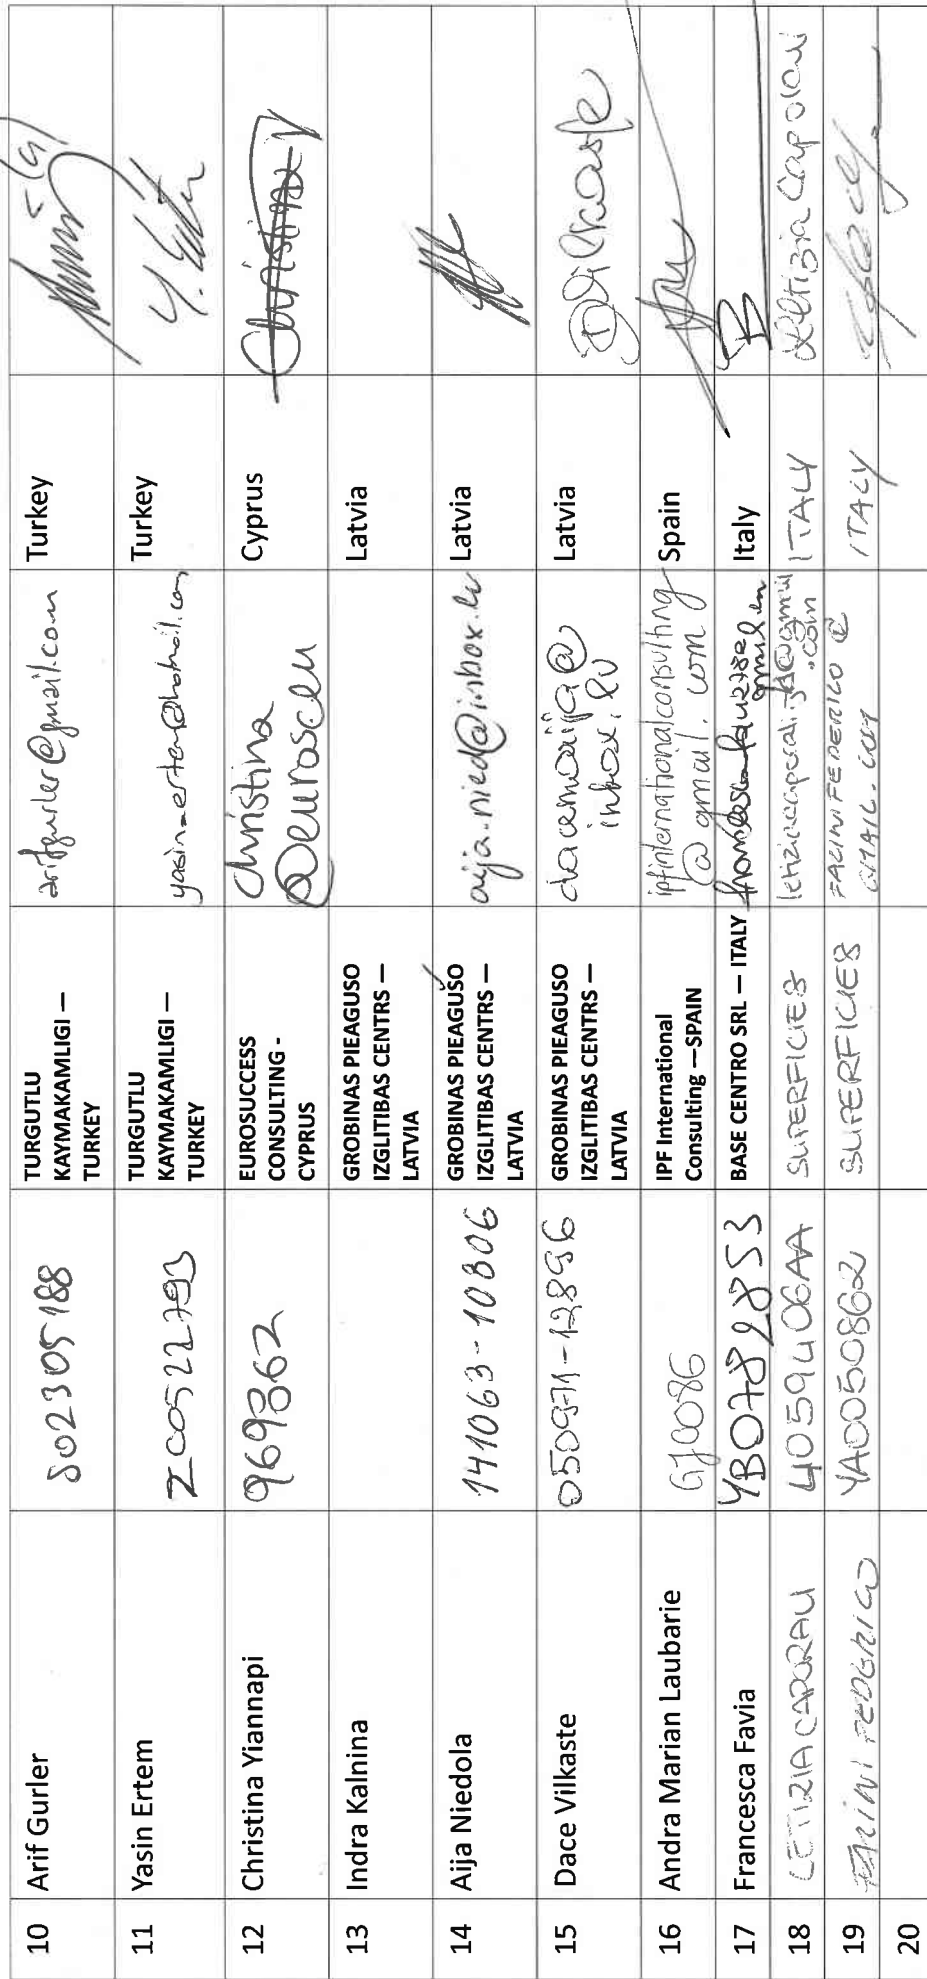 10 Arif Gurler 802305188 TURGUTLU KAYMAKAMLIGI — TURKEY arifgurler@gmail.com Turkey
11 Yasin Ertem 200522793 TURGUTLU KAYMAKAMLIGI — TURKEY Turkey Y. Ertem
12 Christina Yiannapi 969362 EUROSUCCESS CONSULTING - CYPRUS christina @eurosc.eu Cyprus Christina Y
13 Indra Kalnina GROBINAS PIEAGUSO IZGLITIBAS CENTRS — LATVIA Latvia
14 Aija Niedola 141063-10806 GROBINAS PIEAGUSO IZGLITIBAS CENTRS — LATVIA aija.nied@inbox.lv Latvia
15 Dace Vilkaste 050971-12896 GROBINAS PIEAGUSO IZGLITIBAS CENTRS — LATVIA inbox.lv Latvia DVilkaste
16 Andra Marian Laubarie IPF International Consulting —SPAIN ipfinternationalconsulting @ gmail.com Spain
17 Francesca Favia YB0782853 BASE CENTRO SRL — ITALY Italy
18 LETIZIA CAPORALI 4059406AA SUPERFICIE8 ITALY Letizia Caporali
19 FARINI FEDERICO YA0050862 SUPERFICIE8 FARINIFEDERICO @ GMAIL.COM ITALY
20